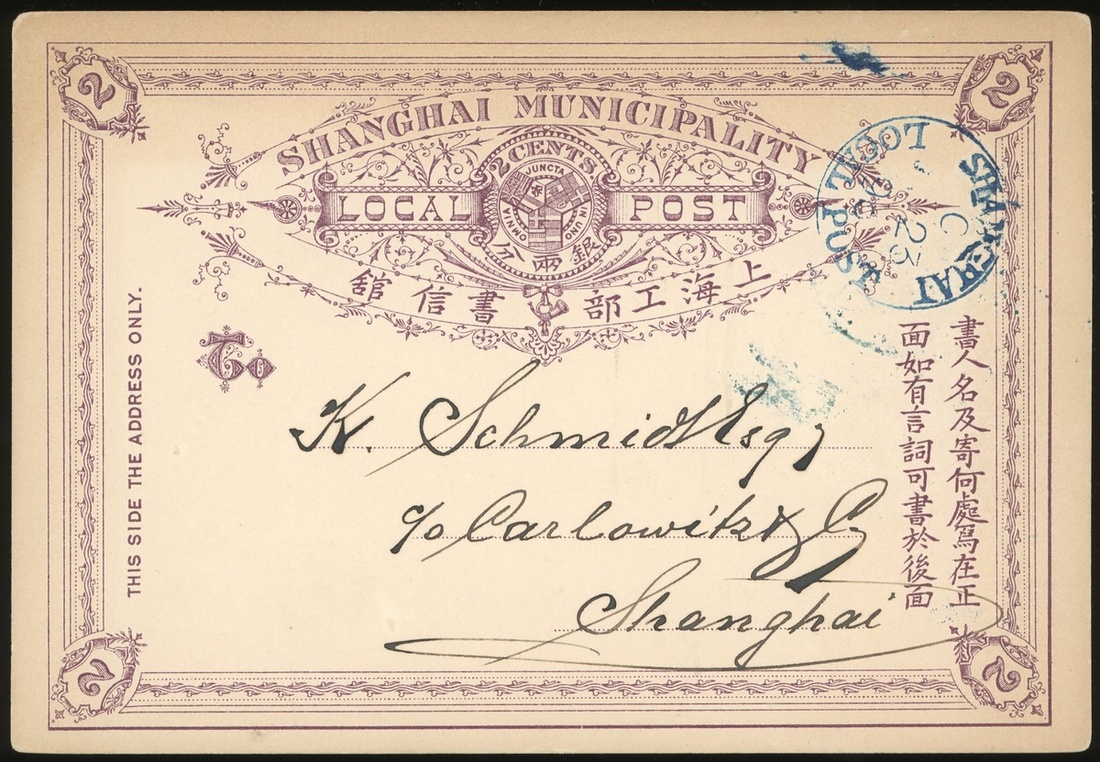 2
2
SHANGHAI MUNICIPALITY
2 CENTS
JUNCTA
IN UNO
OMNIA
LOCAL POST
銀兩分
上海工部書信館
SHANGHAI
LOCAL POST
C
23
THIS SIDE THE ADDRESS ONLY.
To
K. Schmidt Esq
c/o Carlowitz & Co
Shanghai
書人名及寄何處爲在正
面如有言詞可書於後面
2
2